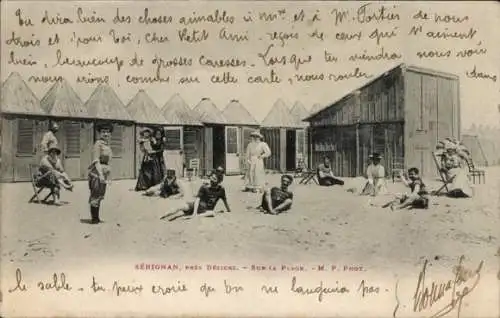 Tu dira bien des choses aimables à Mme et à M. Fortier de nous
trois et pour toi, cher Petit Ami, reçois de ceux qui t'aiment
bien, beaucoup de grosses caresses. Lorsque tu viendra nous
nous irons comme sur cette carte, nous rouler dans
SÉRIGNAN, PRÈS BÉZIERS. - SUR LA PLAGE. - M. P. PHOT.
le sable. tu peux croire qu'on ne languira pas.